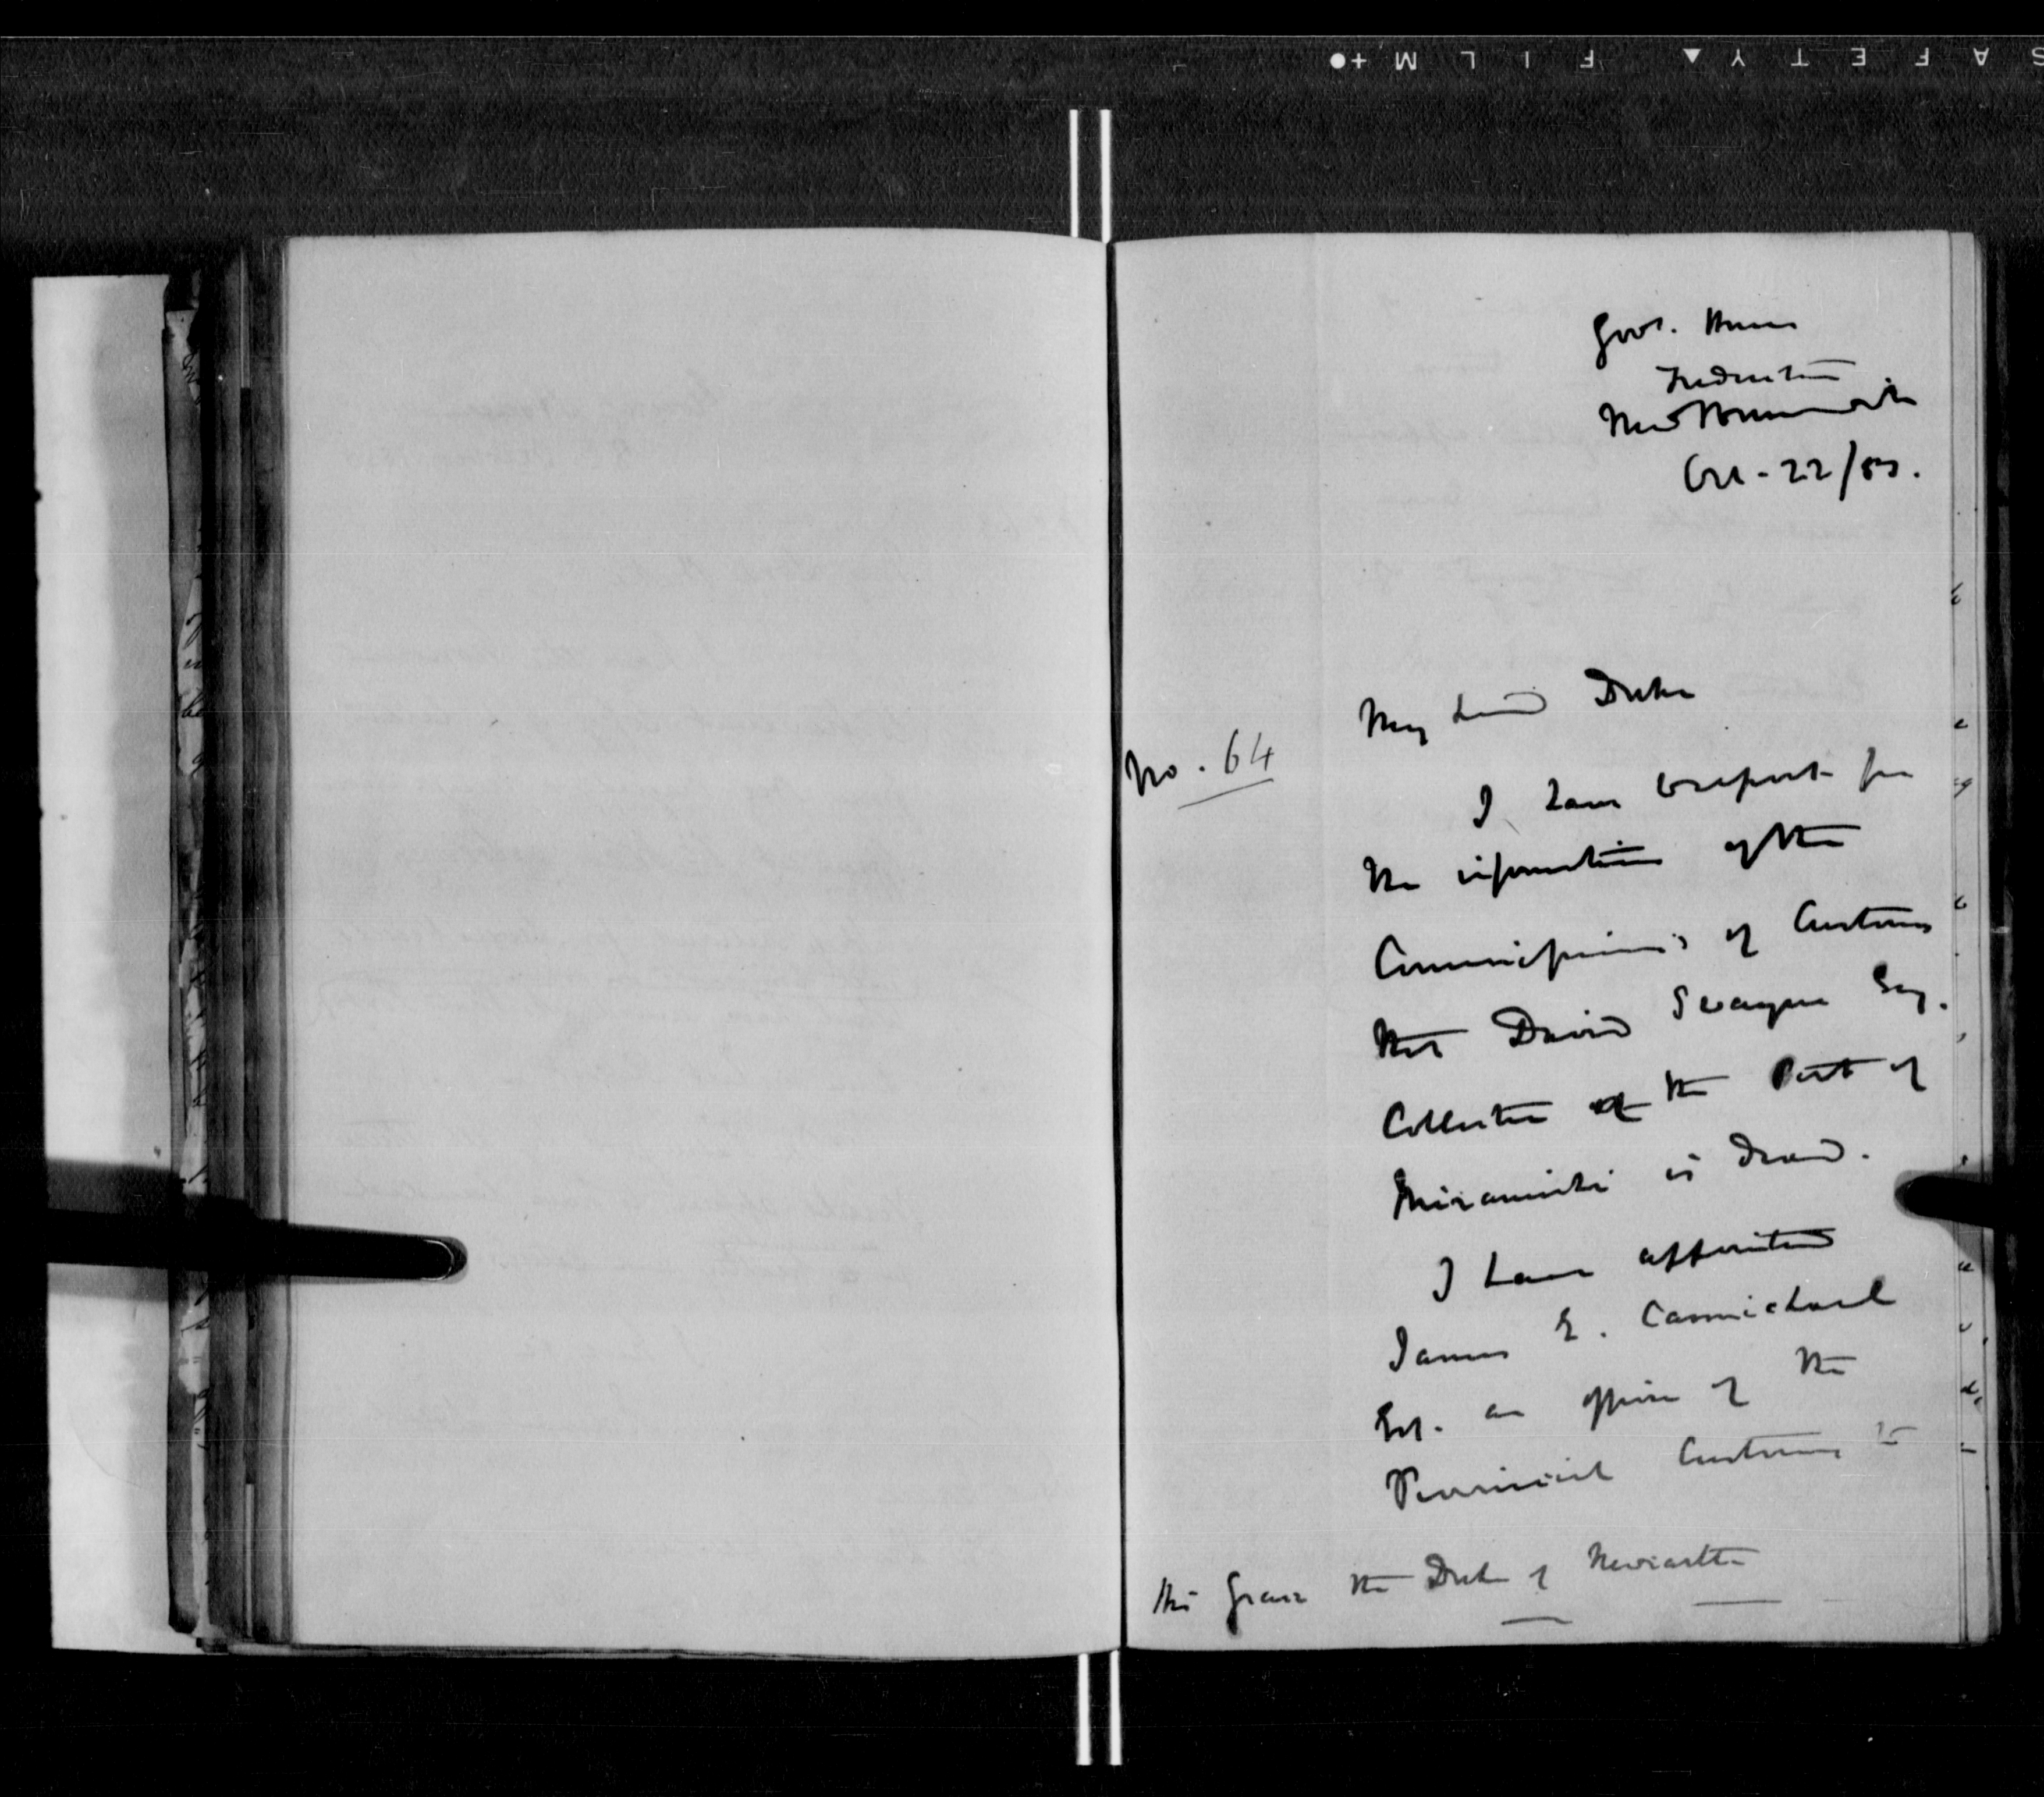 SAFETY FILM
Govt. House
Fredericton
New Brunswick
Oct - 22/53.
My Lord Duke
No. 64
I have to report for
the information of the
Commissioners of Customs
that David Swayne Esq.
Collector of the Port of
Miramichi is dead.
I have appointed
James E. Carmichael
Esq. an officer of the
Provincial Customs to
His Grace the Duke of Newcastle